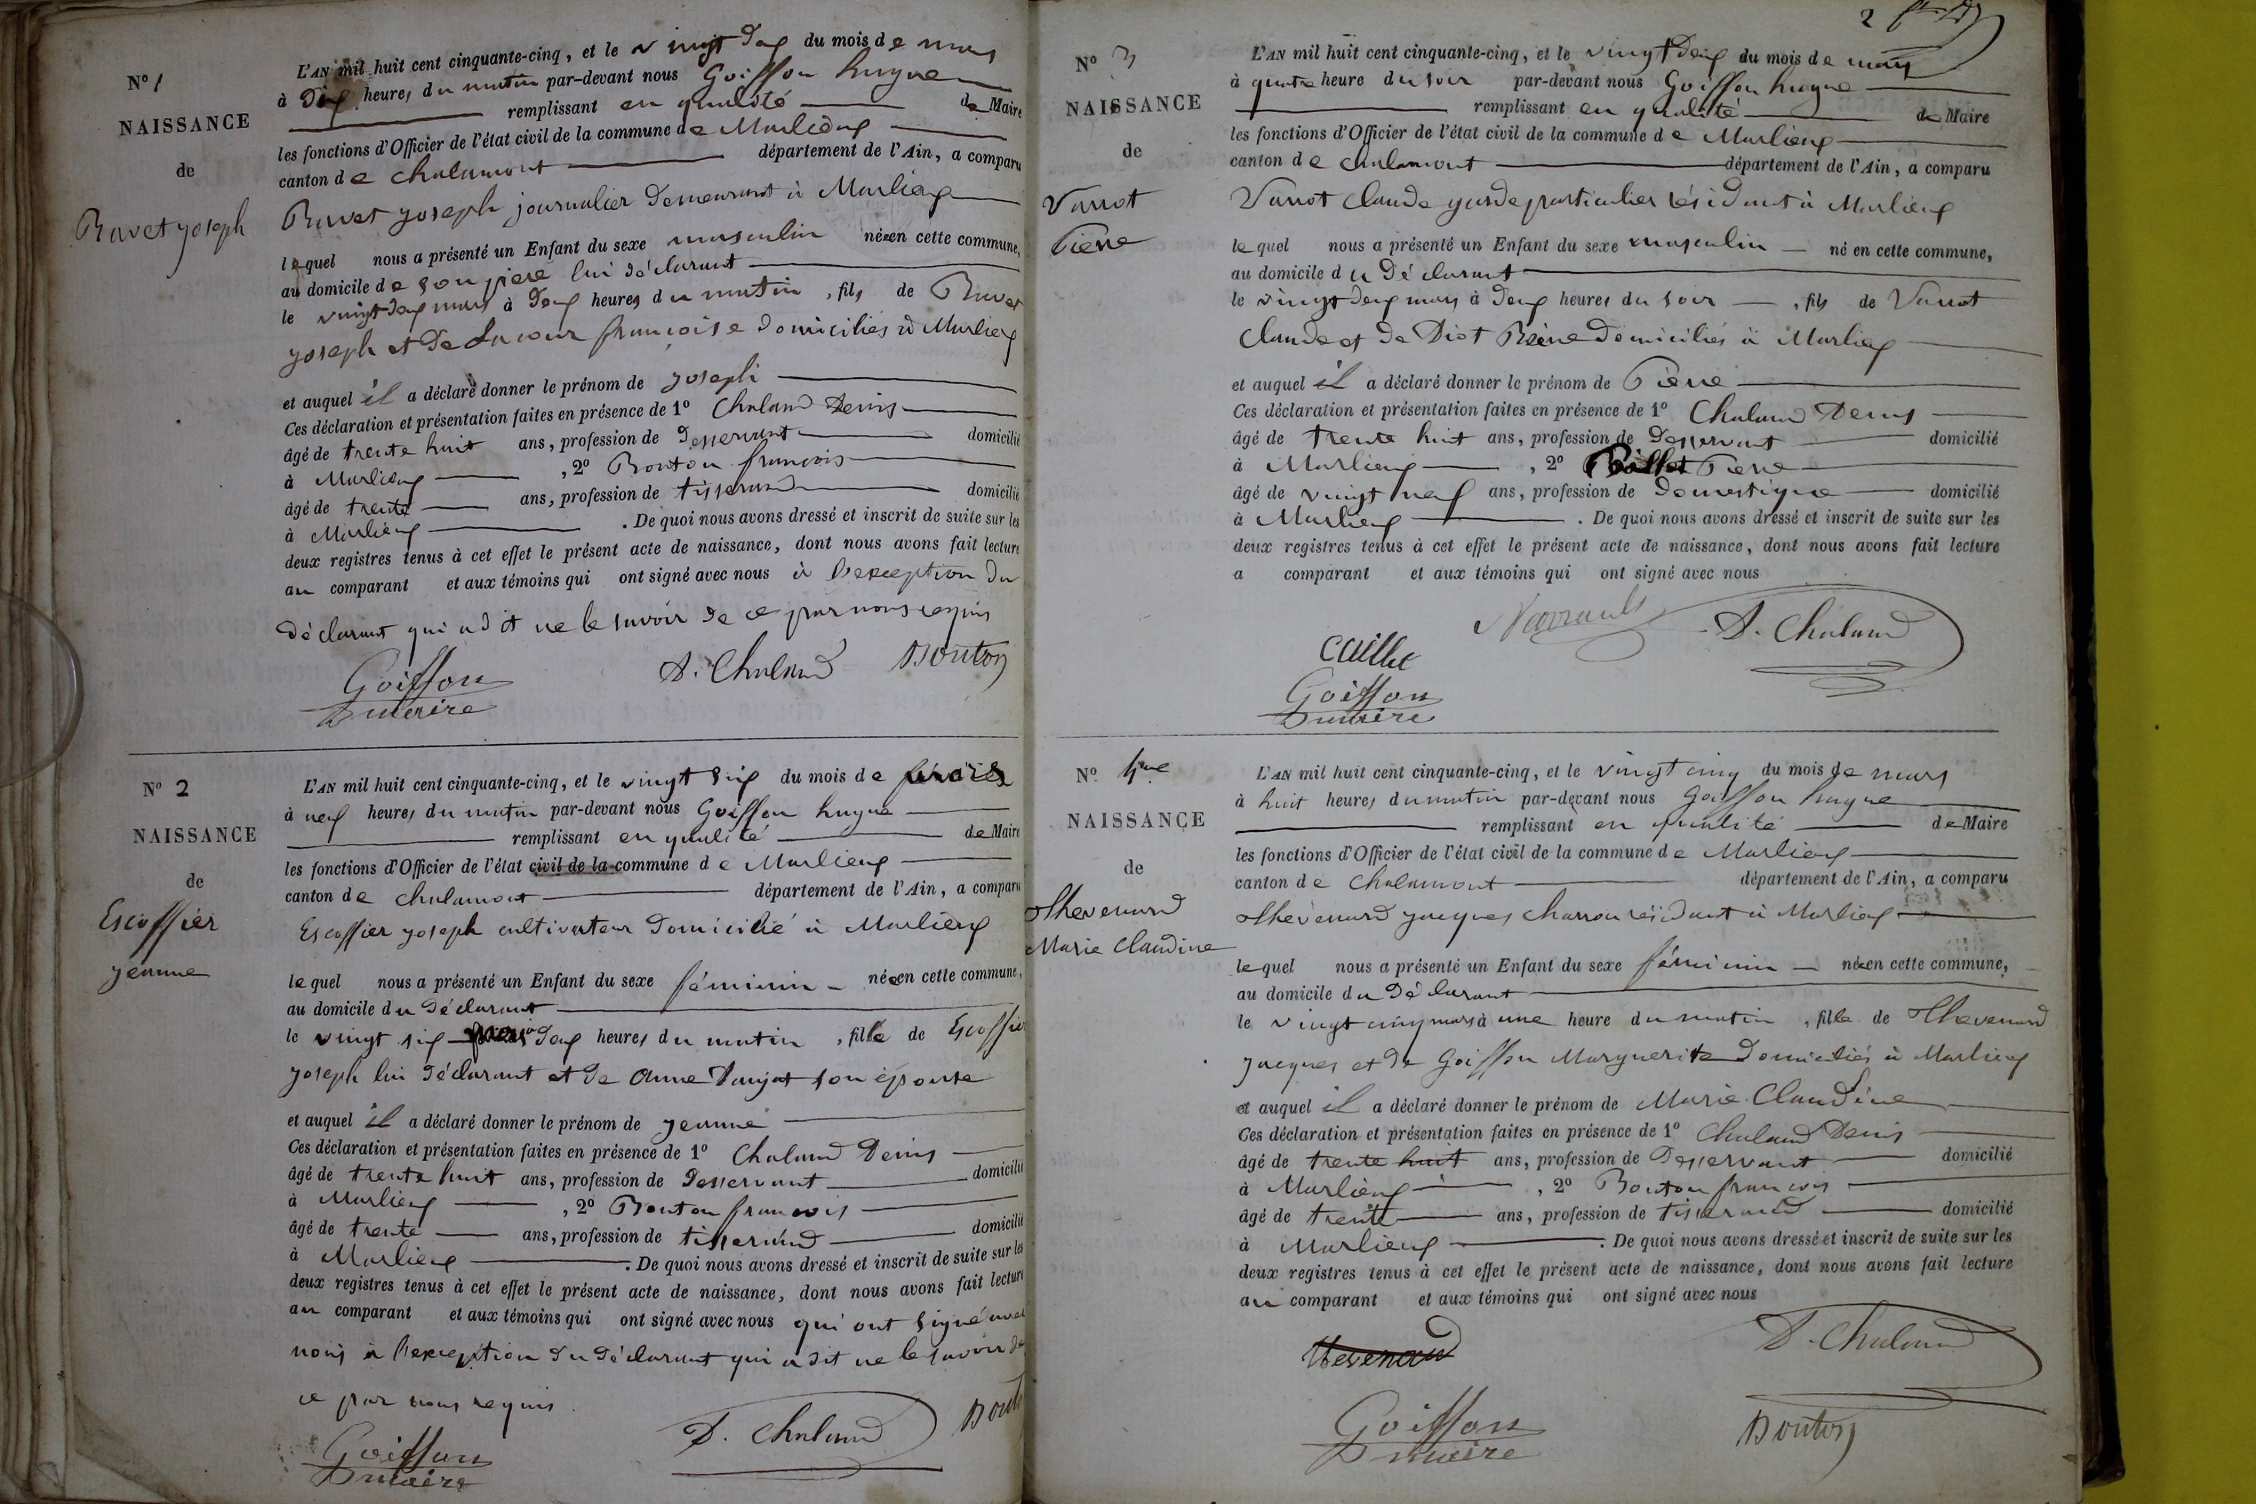 N° 1
NAISSANCE
de
Ravet joseph
L'AN mil huit cent cinquante-cinq, et le vingt deux du mois de mars
à dix heures du matin par-devant nous Goiffon hugue
remplissant en qualité de Maire
les fonctions d'Officier de l'état civil de la commune de Marlieux
canton de chalamont département de l'Ain, a comparu
Ravet joseph journalier demeurant à Marlieux
lequel nous a présenté un Enfant du sexe masculin né en cette commune,
au domicile de son père lui déclarant
le vingt deux mars à deux heures du matin, fils de Ravet
joseph et de Lacour françoise domiciliés à Marlieux
et auquel il a déclaré donner le prénom de joseph
Ces déclaration et présentation faites en présence de 1° Chaland Denis
âgé de trente huit ans, profession de desservant domicilié
à Marlieux, 2° Bouton françois
âgé de trente ans, profession de tisserand domicilié
à Marlieux. De quoi nous avons dressé et inscrit de suite sur les
deux registres tenus à cet effet le présent acte de naissance, dont nous avons fait lecture
au comparant et aux témoins qui ont signé avec nous à l'exception du
déclarant qui a dit ne le savoir de ce par nous requis
Goiffon D. Chaland Bouton
maire
N° 2
NAISSANCE
de
Escoffier
jeanne
L'AN mil huit cent cinquante-cinq, et le vingt six du mois de février
à neuf heures du matin par-devant nous Goiffon hugue
remplissant en qualité de Maire
les fonctions d'Officier de l'état civil de la commune de Marlieux
canton de chalamont département de l'Ain, a comparu
Escoffier joseph cultivateur domicilié à Marlieux
lequel nous a présenté un Enfant du sexe féminin née en cette commune,
au domicile du déclarant
le vingt six deux heures du matin, fille de Escoffier
joseph lui déclarant et de Anne son épouse
et auquel il a déclaré donner le prénom de jeanne
Ces déclaration et présentation faites en présence de 1° Chaland Denis
âgé de trente huit ans, profession de desservant domicilié
à Marlieux, 2° Bouton françois
âgé de trente ans, profession de tisserand domicilié
à Marlieux. De quoi nous avons dressé et inscrit de suite sur les
deux registres tenus à cet effet le présent acte de naissance, dont nous avons fait lecture
au comparant et aux témoins qui ont signé avec nous qui ont signé avec
nous à l'exception du déclarant qui a dit ne le savoir de
ce par nous requis
Goiffon D. Chaland Bouto
maire
2
N° 3
NAISSANCE
de
Varrot
Pierre
L'AN mil huit cent cinquante-cinq, et le vingt deux du mois de mars
à quatre heure du soir par-devant nous Goiffon hugue
remplissant en qualité de Maire
les fonctions d'Officier de l'état civil de la commune de Marlieux
canton de chalamont département de l'Ain, a comparu
Varrot claude garde particulier résidant à Marlieux
lequel nous a présenté un Enfant du sexe masculin né en cette commune,
au domicile du déclarant
le vingt deux mars à deux heures du soir, fils de Varrot
claude et de Diot Reine domiciliés à Marlieux
et auquel il a déclaré donner le prénom de Pierre
Ces déclaration et présentation faites en présence de 1° Chaland Denis
âgé de trente huit ans, profession de desservant domicilié
à Marlieux, 2° Pierre
âgé de vingt neuf ans, profession de domestique domicilié
à Marlieux. De quoi nous avons dressé et inscrit de suite sur les
deux registres tenus à cet effet le présent acte de naissance, dont nous avons fait lecture
a comparant et aux témoins qui ont signé avec nous
D. Chaland
Caillet
Goiffon
maire
N° 4me
NAISSANCE
de
Thevenard
Marie Claudine
L'AN mil huit cent cinquante-cinq, et le vingt cinq du mois de mars
à huit heures du matin par-devant nous Goiffon hugue
remplissant en qualité de Maire
les fonctions d'Officier de l'état civil de la commune de Marlieux
canton de chalamont département de l'Ain, a comparu
Thevenard jacques charron résidant à Marlieux
lequel nous a présenté un Enfant du sexe féminin née en cette commune,
au domicile du déclarant
le vingt cinq mars à une heure du matin, fille de Thevenard
jacques et de Goiffon Marguerite domiciliés à Marlieux
et auquel il a déclaré donner le prénom de Marie Claudine
Ces déclaration et présentation faites en présence de 1° Chaland Denis
âgé de trente huit ans, profession de desservant domicilié
à Marlieux, 2° Bouton francois
âgé de trente ans, profession de tisserand domicilié
à Marlieux. De quoi nous avons dressé et inscrit de suite sur les
deux registres tenus à cet effet le présent acte de naissance, dont nous avons fait lecture
au comparant et aux témoins qui ont signé avec nous
Thevenard D. Chaland
Goiffon Bouton
maire